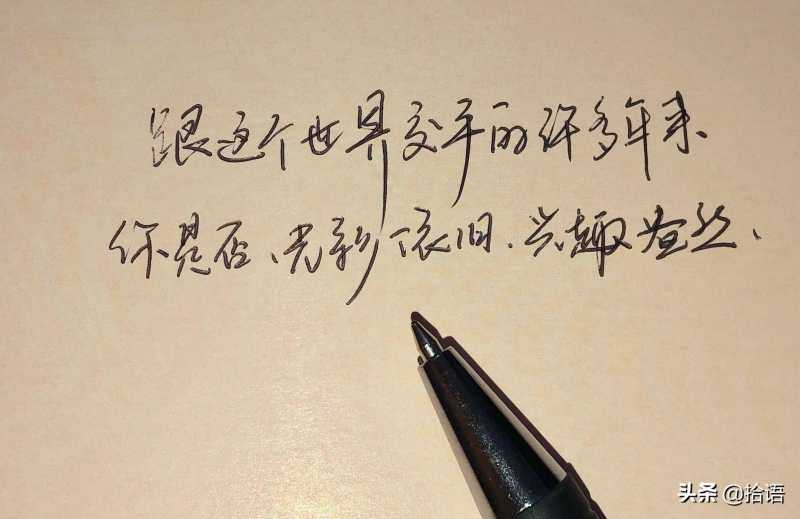 跟这个世界交手的许多年来、
你是否、光彩依旧、兴趣盎然、
头条 @拾语